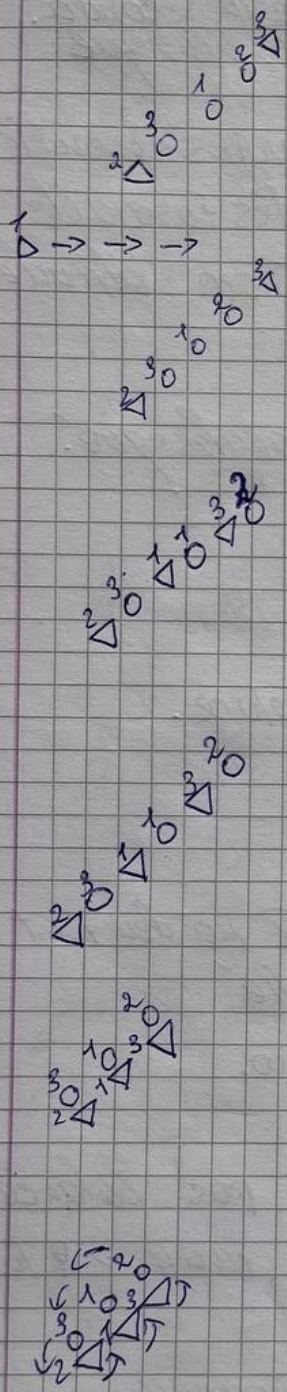 3
2
1
3
2
1
3
2
1
3
2
2
3
1
1
3
2
2
3
1
1
3
2
2
1
3
3
1
2
2
1
3
3
1
2